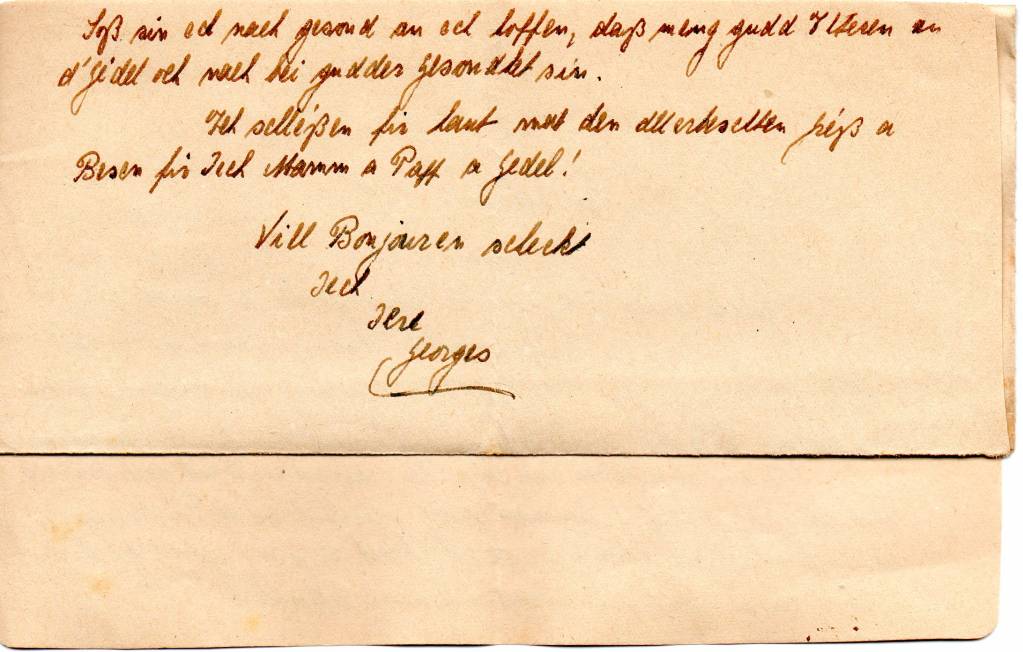 Soß sin ech nach gesond an ech hoffen, daß meng gudd Elteren an
d'Gedel och nach bei gudder Gesondhet sin.
Ech schléßen fir haut mat den allerheschten Gréß a
Besen fir Iech Mamm a Papp a Gedel!
Vill Bonjouren scheckt
Iech
Iere
Georges